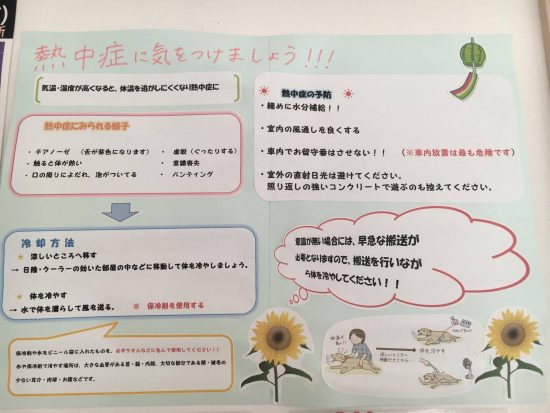 熱中症に気をつけましょう!!!
気温・湿度が高くなると、体温を逃がしにくくなり熱中症に
熱中症にみられる様子
・ チアノーゼ (舌が紫色になります)
・ 触ると体が熱い
・ 口の周りによだれ、泡がついてる
・ 虚脱(ぐったりする)
・ 意識喪失
・ パンティング
冷却方法
★ 涼しいところへ移す
→ 日陰・クーラーの効いた部屋の中などに移動して体を冷やしましょう。
★ 体を冷やす
→ 水で体を濡らして風を送る。 ※ 保冷剤を使用する
保冷剤や氷をビニール袋に入れたものを、必ずタオルなどに包んで使用してください!!
氷や保冷剤で冷やす場所は、大きな血管がある首・脇・内股、大切な部分である頭・被毛の
少ない耳介・肉球・お腹などです。
熱中症の予防
・細めに水分補給!!
・室内の風通しを良くする
・車内でお留守番はさせない!! (※車内放置は最も危険です)
・室外の直射日光は避けてください。
照り返しの強いコンクリートで遊ぶのも控えてください。
意識が無い場合には、早急な搬送が
必要となりますので、搬送を行いなが
ら体を冷やしてください!!
涼しいところへ
移動させてから…
体を冷やす